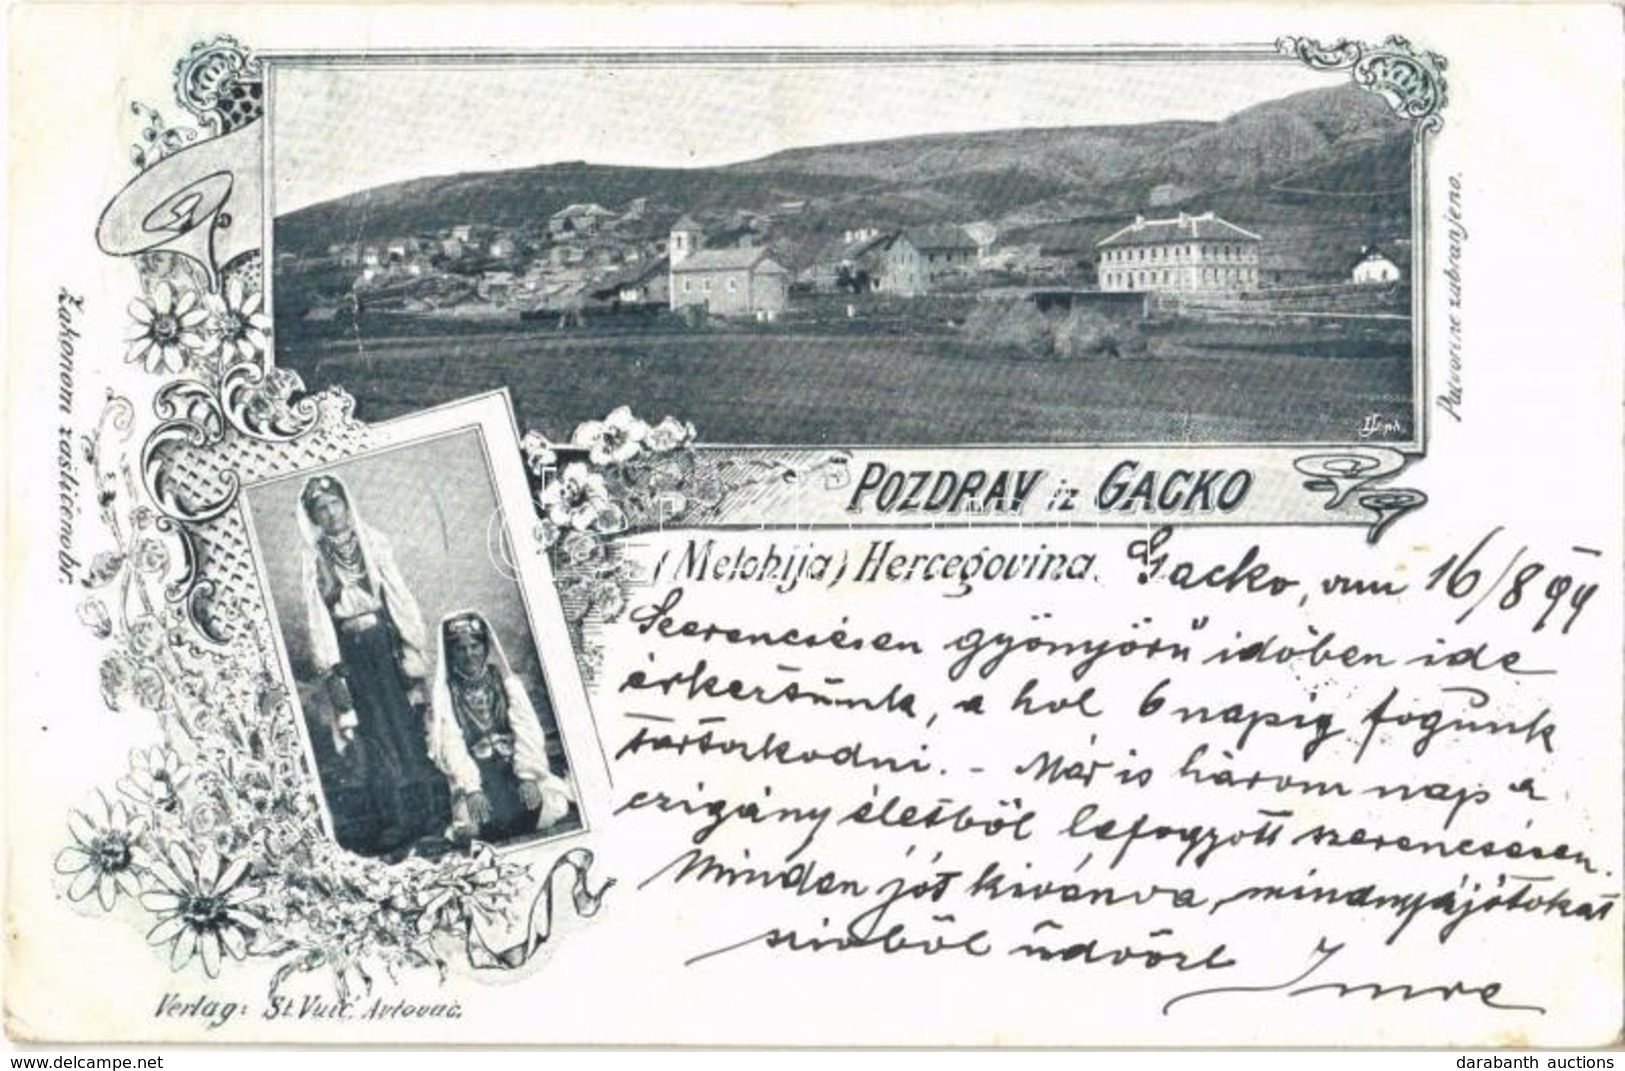 POZDRAV iz GACKO
(Metohija) Hercegovina.
Zakonom zaštićeno br.
Ponovo ne zabranjeno.
Gacko, am 16/8 99
Szerencsésen gyönyörű időben ide
érkeztünk, a hol 6 napig fogunk
tartózkodni. - Már is három nap a
czigány életből lefogyott szerencsésen.
Minden jót kivánva, mindnyájótokat
szivből üdvözl Imre
Verlag: St. Vuić. Avtovac.
www.delcampe.net
darabanth auctions